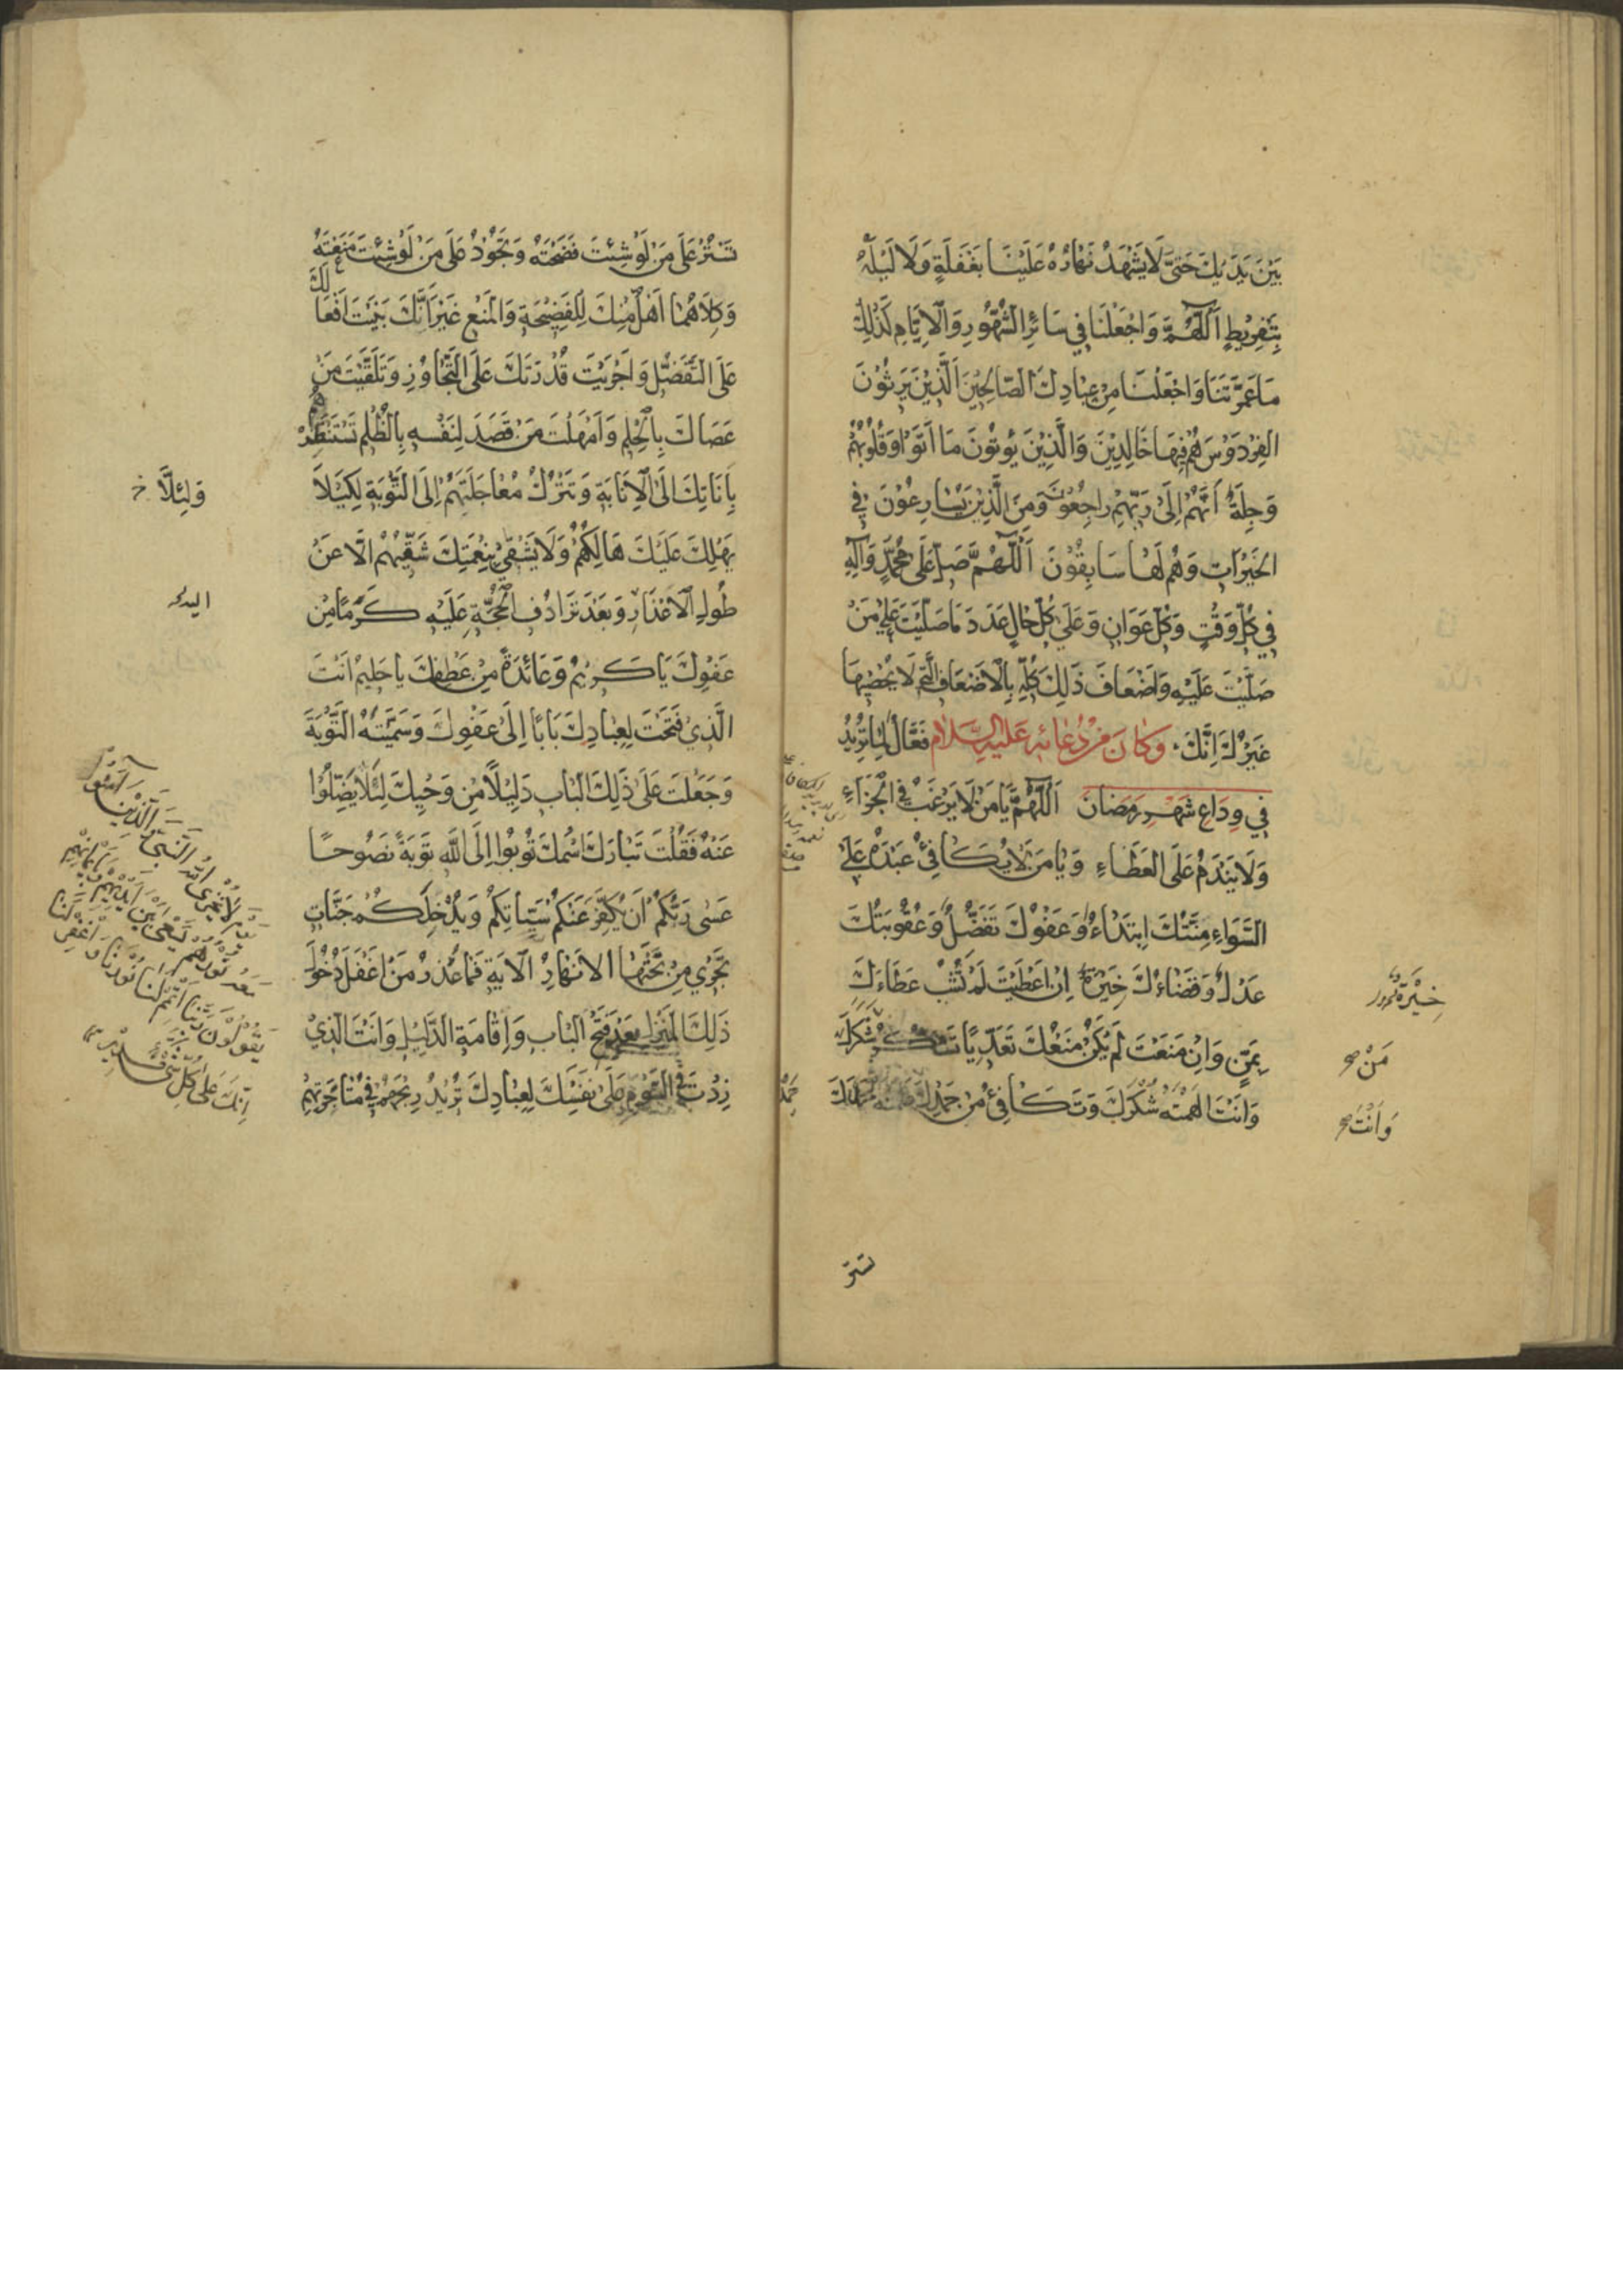 بَيْنَ يَدَيْكَ حَتّىٰ لَا يَشْهَدَ نَهَارُهُ عَلَيْنَا بِغَفْلَةٍ وَلَا لَيْلُهُ
بِتَفْرِيْطٍ اَللّٰهُمَّ وَاجْعَلْنَا فِي سَائِرِ الشُّهُوْرِ وَالْاَيَّامِ كَذٰلِكَ
مَا عَمَّرْتَنَا وَاجْعَلْنَا مِنْ عِبَادِكَ الصَّالِحِيْنَ الَّذِيْنَ يَرِثُوْنَ
الفِرْدَوْسَ هُمْ فِيهَا خَالِدِيْنَ وَالَّذِيْنَ يُؤْتُوْنَ مَا اٰتَوْا وَقُلُوْبُهُمْ
وَجِلَةٌ اَنَّهُمْ اِلَى رَبِّهِمْ رَاجِعُوْنَ وَمِنَ الَّذِيْنَ يُسَارِعُوْنَ فِي
الخَيْرَاتِ وَهُمْ لَهَا سَابِقُوْنَ اَللّٰهُمَّ صَلِّ عَلَى مُحَمَّدٍ وَآلِهِ
فِي كُلِّ وَقْتٍ وَكُلِّ عَوَانٍ وَعَلَى كُلِّ حَالٍ عَدَدَ مَا صَلَّيْتَ عَلٰى مَنْ
صَلَّيْتَ عَلَيْهِ وَاَضْعَافَ ذٰلِكَ كُلِّهِ بِالْاَضْعَافِ الَّتِي لَا يُحْصِيْهَا
غَيْرُكَ اِنَّكَ وَكَانَ مِنْ دُعَائِهِ عَلَيْهِ السَّلَام فَعَّالٌ لِمَا تُرِيْدُ
فِي وِدَاعِ شَهْرِ رَمَضَانَ اَللّٰهُمَّ يَا مَنْ لَا يَرْغَبُ فِي الْجَزَاءِ
وَلَا يَنْدَمُ عَلَى الْعَطَاءِ وَيَا مَنْ لَا يُكَافِئُ عَبْدَهُ عَلَى
السَّوَاءِ مِنَّتُكَ اِبْتِدَاءٌ وَعَفْوُكَ تَفَضُّلٌ وَعُقُوْبَتُكَ
عَدْلٌ وَقَضَاءُكَ خِيَرَةٌ اِنْ اَعْطَيْتَ لَمْ تَشُبْ عَطَاءَكَ
بِمَنٍّ وَاِنْ مَنَعْتَ لَمْ يَكُنْ مَنْعُكَ تَعَدِّيًا تَشْكُرُ شَكَرَكَ
وَاَنْتَ اَلْهَمْتَهُ شُكْرَكَ وَتُكَافِئُ مَنْ حَمِدَكَ
خِيَرَةٌ
مَنْ صح
وَاَنْتَ صح
تستر
تَسْتُرُ عَلَى مَنْ لَوْ شِئْتَ فَضَحْتَهُ وَتَجُوْدُ عَلَى مَنْ لَوْ شِئْتَ مَنَعْتَهُ
وَكِلَاهُمَا اَهْلٌ مِنْكَ لِلْفَضِيْحَةِ وَالْمَنْعِ غَيْرَ اَنَّكَ بَنَيْتَ اَفْعَالَكَ
عَلَى التَّفَضُّلِ وَاَجْرَيْتَ قُدْرَتَكَ عَلَى التَّجَاوُزِ وَتَلَقَّيْتَ مَنْ
عَصَاكَ بِالْحِلْمِ وَاَمْهَلْتَ مَنْ قَصَدَ لِنَفْسِهِ بِالظُّلْمِ تَسْتَنْظِرُهُمْ
بِاَنَاتِكَ اِلَى الْاِنَابَةِ وَتَتْرُكُ مُعَاجَلَتَهُمْ اِلَى التَّوْبَةِ لِكَيْلَا
يَهْلِكَ عَلَيْكَ هَالِكُهُمْ وَلَا يَشْقٰى بِنِعْمَتِكَ شَقِيُّهُمْ اِلَّا عَنْ
طُولِ الْاِعْذَارِ وَبَعْدَ تَرَادُفِ الْحُجَّةِ عَلَيْهِ كَرَمًا مِنْ
عَفْوِكَ يَا كَرِيْمُ وَعَائِدَةً مِنْ عَطْفِكَ يَا حَلِيْمُ اَنْتَ
الَّذِيْ فَتَحْتَ لِعِبَادِكَ بَابًا اِلَى عَفْوِكَ وَسَمَّيْتَهُ التَّوْبَةَ
وَجَعَلْتَ عَلَى ذٰلِكَ الْبَابِ دَلِيْلًا مِنْ وَحْيِكَ لِئَلَّا يَضِلُّوْا
عَنْهُ فَقُلْتَ تَبَارَكَ اسْمُكَ تُوْبُوْا اِلَى اللّٰهِ تَوْبَةً نَصُوْحًا
عَسٰى رَبُّكُمْ اَنْ يُكَفِّرَ عَنْكُمْ سَيِّئَاتِكُمْ وَيُدْخِلَكُمْ جَنَّاتٍ
تَجْرِيْ مِنْ تَحْتِهَا الْاَنْهَارُ الْآيَةِ فَمَا عُذْرُ مَنْ اَغْفَلَ دُخُوْلَ
ذٰلِكَ الْمَنْزِلِ بَعْدَ فَتْحِ الْبَابِ وَاِقَامَةِ الدَّلِيْلِ وَاَنْتَ الَّذِيْ
زِدْتَ فِي السَّوْمِ عَلَى نَفْسِكَ لِعِبَادِكَ تُرِيْدُ رِبْحَهُمْ فِي مُتَاجَرَتِهِمْ
وَلِئَلَّا خ
يَوْمَ لَا يُخْزِي اللّٰهُ النَّبِيَّ وَالَّذِيْنَ آمَنُوْا
مَعَهُ نُوْرُهُمْ يَسْعٰى بَيْنَ اَيْدِيْهِمْ وَبِاَيْمَانِهِمْ
يَقُوْلُوْنَ رَبَّنَا اَتْمِمْ لَنَا نُوْرَنَا وَاغْفِرْ لَنَا
اِنَّكَ عَلَى كُلِّ شَيْءٍ قَدِيْرٌ